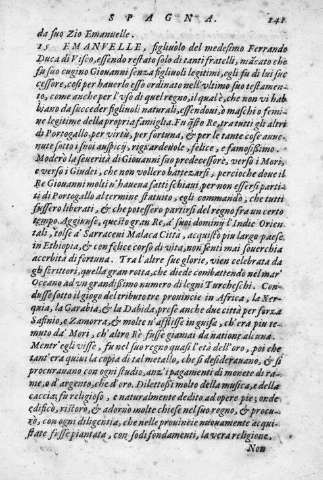 SPAGNA. 141
da suo Zio Emanuelle.
15 EMANVELLE, figliuolo del medesimo Ferrando
Duca di Viseo, essendo restato solo di tanti fratelli, mãcato che
fu suo cugino Giouanni senza figliuoli legitimi, egli fu di lui suc
cessore, cosi per hauerlo esso ordinato nell'vltimo suo testamen-
to, come anche per l'vso di quel regno, il qual'è, che non vi hab
biano da succeder figliuoli naturali, essendoui, ò maschi ò femi-
ne legitime della propria famiglia. Fù questo Re, tra tutti gli altri
di Portogallo, per virtù, per fortuna, & per le tante cose auue-
nute sotto i suoi auspicij, riguardeuole, felice, e famosissimo.
Moderò la seuerità di Giouanni suo predecessore, verso i Mori,
e verso i Giudei, che non vollero battezarsi, percioche doue il
Re Giouanni molti n'haueua fatti schiaui, per non essersi parti-
ti di Portogallo al termine statuito, egli commandò, che tutti
fussero liberati, & che potessero partirsi del regno fra un certo
tempo. Aggiunse, questo gran Re, a' suoi dominij l'Indie Orien
tali, tolse a' Sarraceni Malaca Città, acquistò piu largo paese,
in Ethiopia, & con felice corso di vita, non sentì mai souerchia
acerbità di fortuna. Tra l'altre sue glorie, vien celebrata da
gli scrittori, quella gran rotta, che diede combattendo nel mar'
Oceano ad vn grandissimo numero di legni Turcheschi. Con
dusse sotto il giogo del tributo tre prouincie in Africa, la Xer-
quia, la Garabia, & la Dabida, prese anche due città per forza
Safinio, e Zamorra, & molte n'afflisse in guisa, ch'era piu te-
muto da' Mori, ch'altro Rè fosse giamai da nation' alcuna.
Mentr'egli visse, fu nel suo regno quasi l'età dell'oro, poi che
tant'era quiui la copia di tal metallo, che si desiderauano, & si
procurauano con ogni studio, anzi pagamenti di moneta di ra-
me, o d'argento, che d'oro. Dilettosi molto della musica, e della
caccia, fu religioso, e naturalmente dedito ad opere pie, onde
edificò, ristorò, & adornò molte chiese nel suo regno, & procu-
rò, con ogni diligentia, che nelle prouincie nuouamente acqui-
state fosse piantata, con sodi fondamenti, la vera religione.
Non